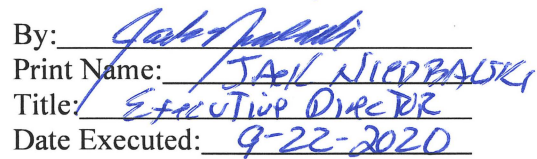 By:
Print Name: JACK NIEDBALSKI
Title: EXECUTIVE DIRECTOR
Date Executed: 9-22-2020